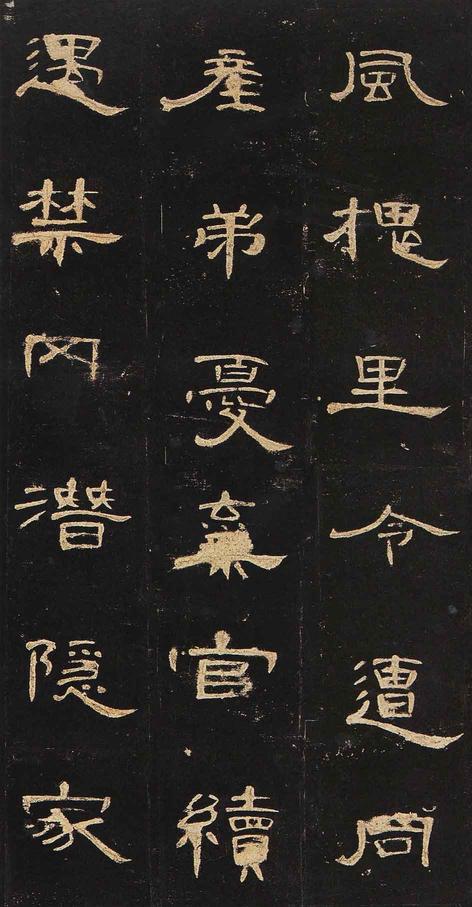 風槐里令遭同
產弟憂棄官續
遇禁冈潜隱家